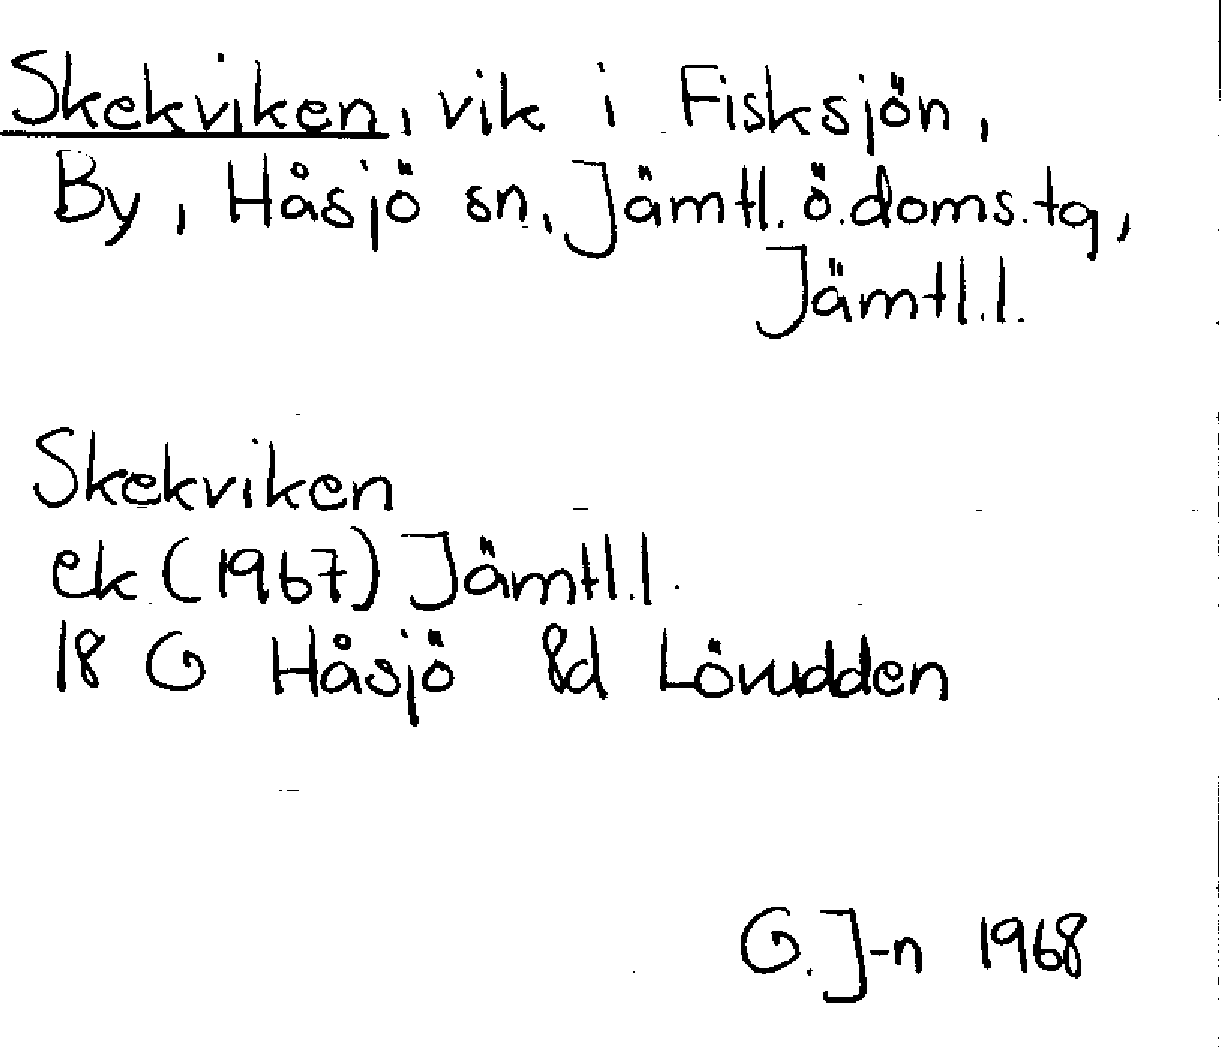 Skekviken, vik i Fisksjön,
By, Håsjö sn, Jämtl. ö. doms. tg,
Jämtl. l.
Skekviken
ek (1967) Jämtl. l.
18 G Håsjö 8d Lövudden
G. J-n 1968